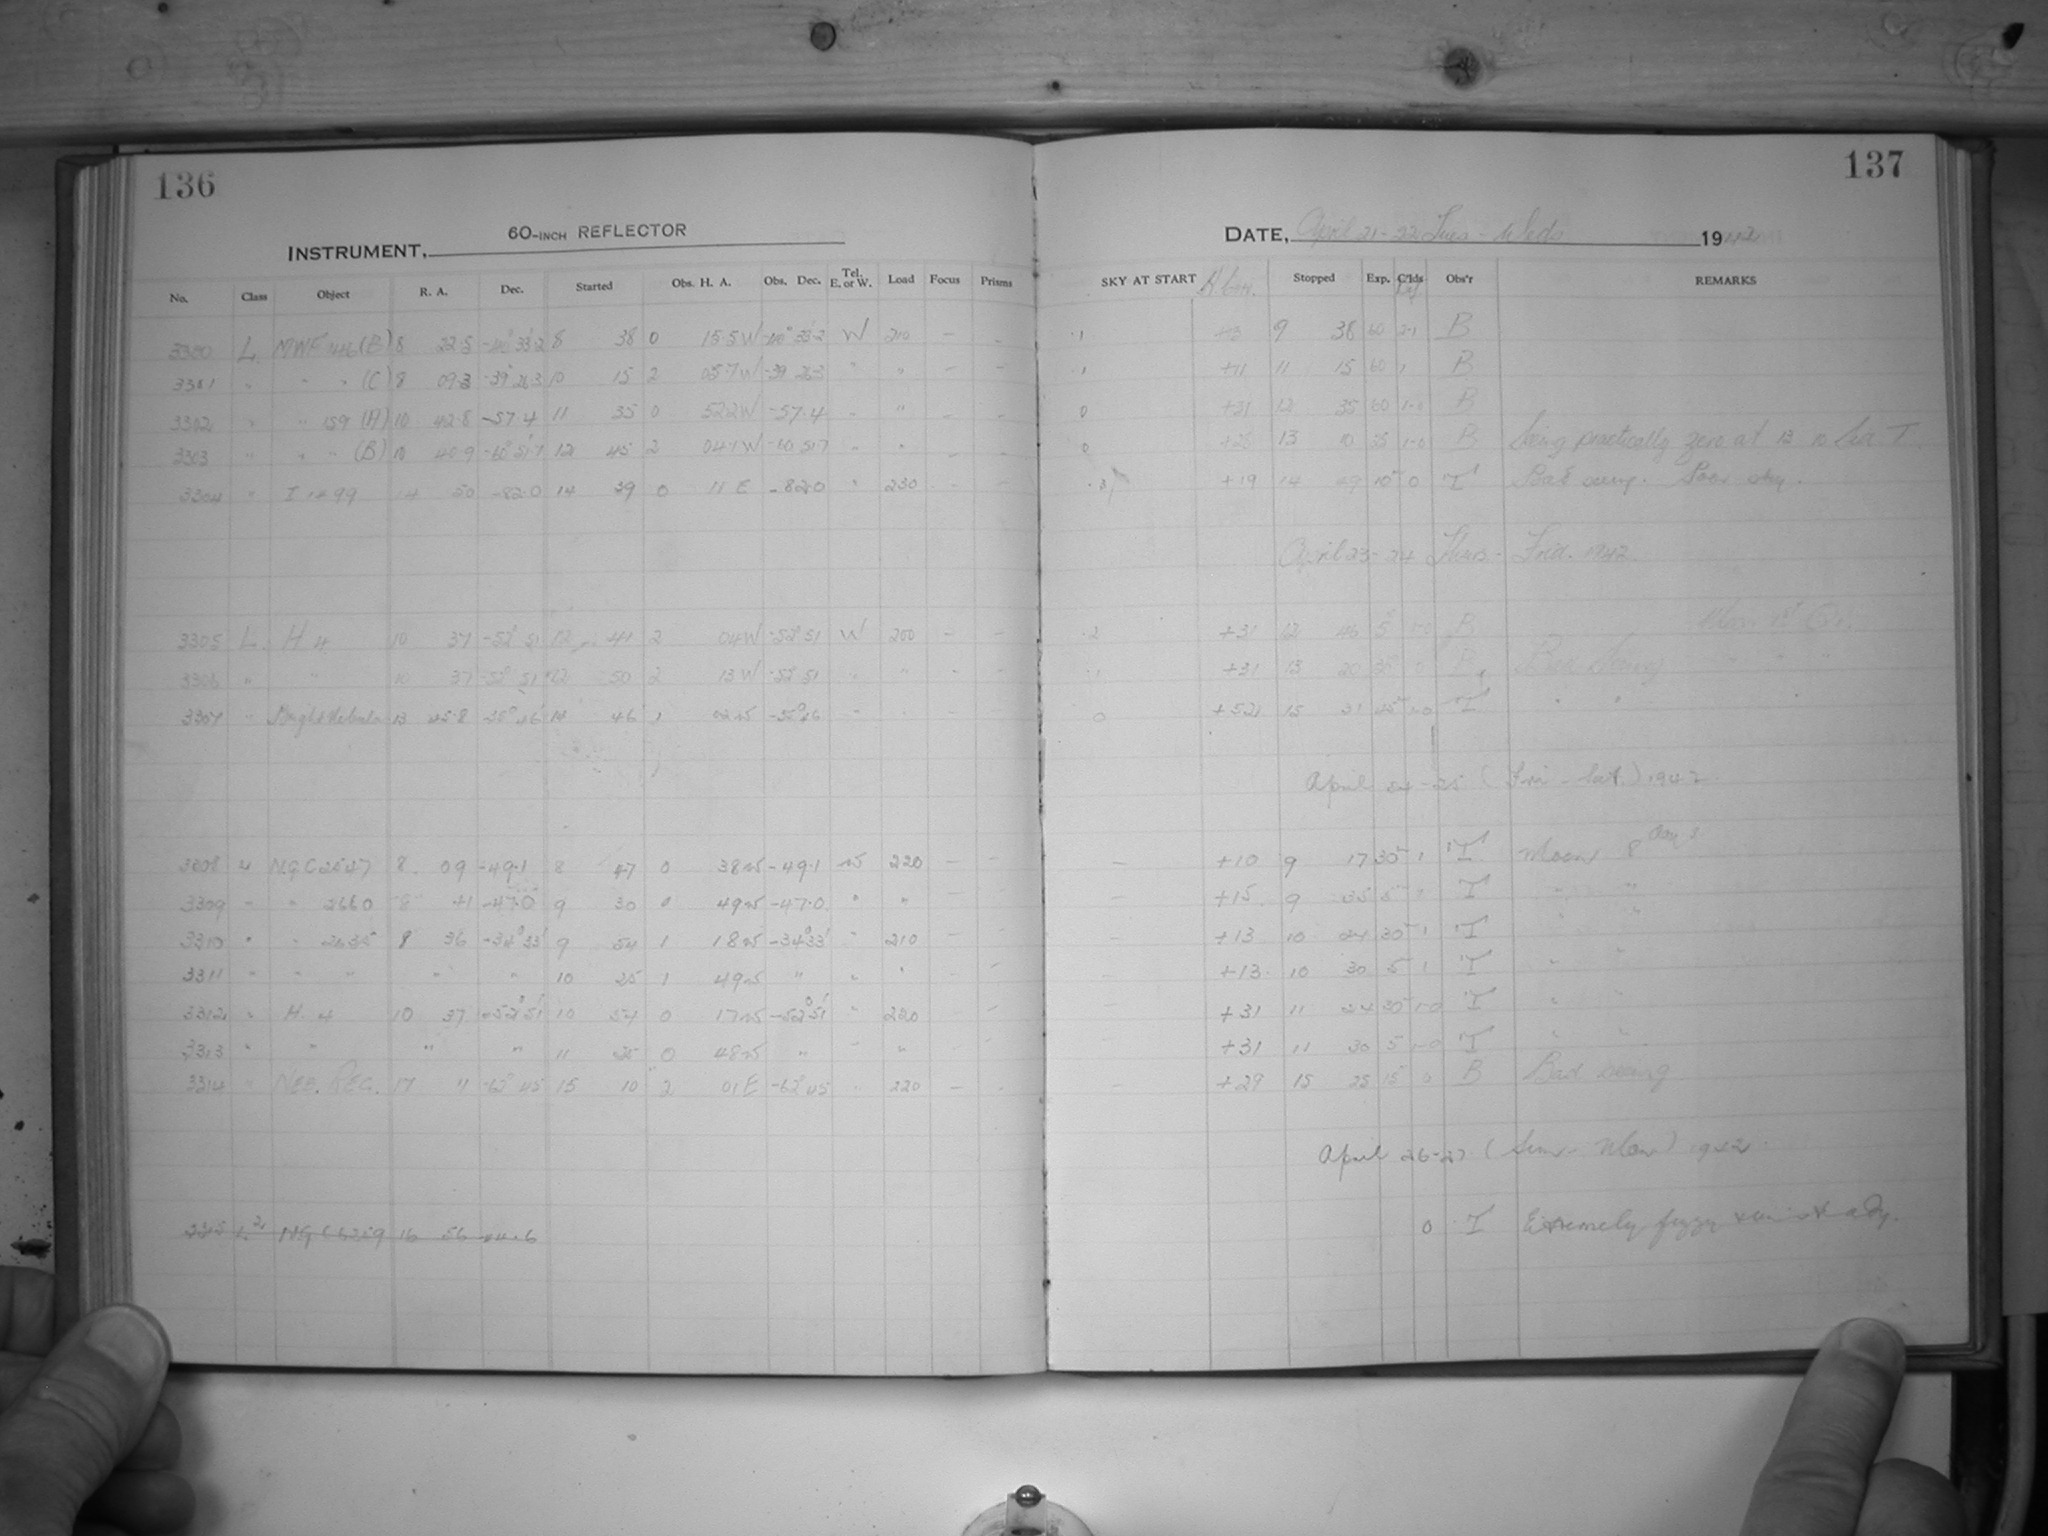 136
INSTRUMENT, 60-INCH REFLECTOR
No. Class Object R. A. Dec. Started Obs. H. A. Obs. Dec. Tel. E. or W. Load Focus Prisms
3300 L MWF 146 (B) 8 22.5 -40° 33'.2 8 38 0 15.5 W -40° 33'.2 W 210 - -
3301 " " " (C) 8 09.3 -39° 26.3 10 15 2 05.7 W -39 26.3 " " - -
3302 " " 159 (H) 10 42.8 -57.4 11 35 0 52.2 W -57.4 " " - -
3303 " " " (B) 10 40.9 -60° 51'.7 12 45 2 04.1 W -60 51.7 " " - -
3304 " I 4499 14 50 -82.0 14 39 0 11 E -82.0 " 230 - -
3305 L H 4 10 37 -52° 51 12 41 2 04 W -52° 51 W 200 - -
3306 " " 10 37 -52° 51' 12 50 2 13 W -52° 51 " " - -
3307 " Bright Nebula 13 46 1
3308 L NGC 2547 8 09 -49.1 8 47 0 38 W -49.1 W 220 - -
3309 " " 2660 8 41 -47.0 9 30 0 49 W -47.0 " " - -
3310 " " 2635 8 36 -34° 33' 9 54 1 18 W -34° 33' " 210 - -
3311 " " " " " 10 25 1 49 W " " " - -
3312 " H. 4 10 37 -52° 51' 10 54 0 17 W -52° 51' " 220 - -
3313 " " " " 11 25 0 48 W " " " - -
3314 " NEB. REG. 17 11 -62° 45 15 10 2 01 E -62° 45 " 220 - -
3315 L² NGC 6259 16 56 -44.6
137
DATE, April 21-22 Tues - Weds 1942
SKY AT START Stopped Exp. C'lds Obs'r REMARKS
.1 +13 9 38 60 2-1 B
.1 +11 11 15 60 1 B
0 +31 12 35 60 1-0 B
0 13 10 25 1-0 B Seeing practically zero at 13 10
.3 +19 14 49 10 0 T Bad seeing. Poor sky.
April 23-24 Thurs - Frid. 1942.
.2 +31 12 46 5 1-0 B Moon 1st Qr.
.1 +31 13 20 30 0 B Bad Seeing " " "
0 15 31 45 T " "
April 24-25 (Fri - Sat.) 1942.
- +10 9 17 30 1 T Moon 8 days
- +15 9 35 5 1 T " "
- +13 10 24 30 1 T " "
- +13 10 30 5 1 T " "
- +31 11 24 30 1-0 T " "
- +31 11 30 5 1-0 T " "
- +29 15 25 15 0 B Bad seeing
April 26-27 (Sun - Mon) 1942
0 T Extremely fuzzy & unsteady.